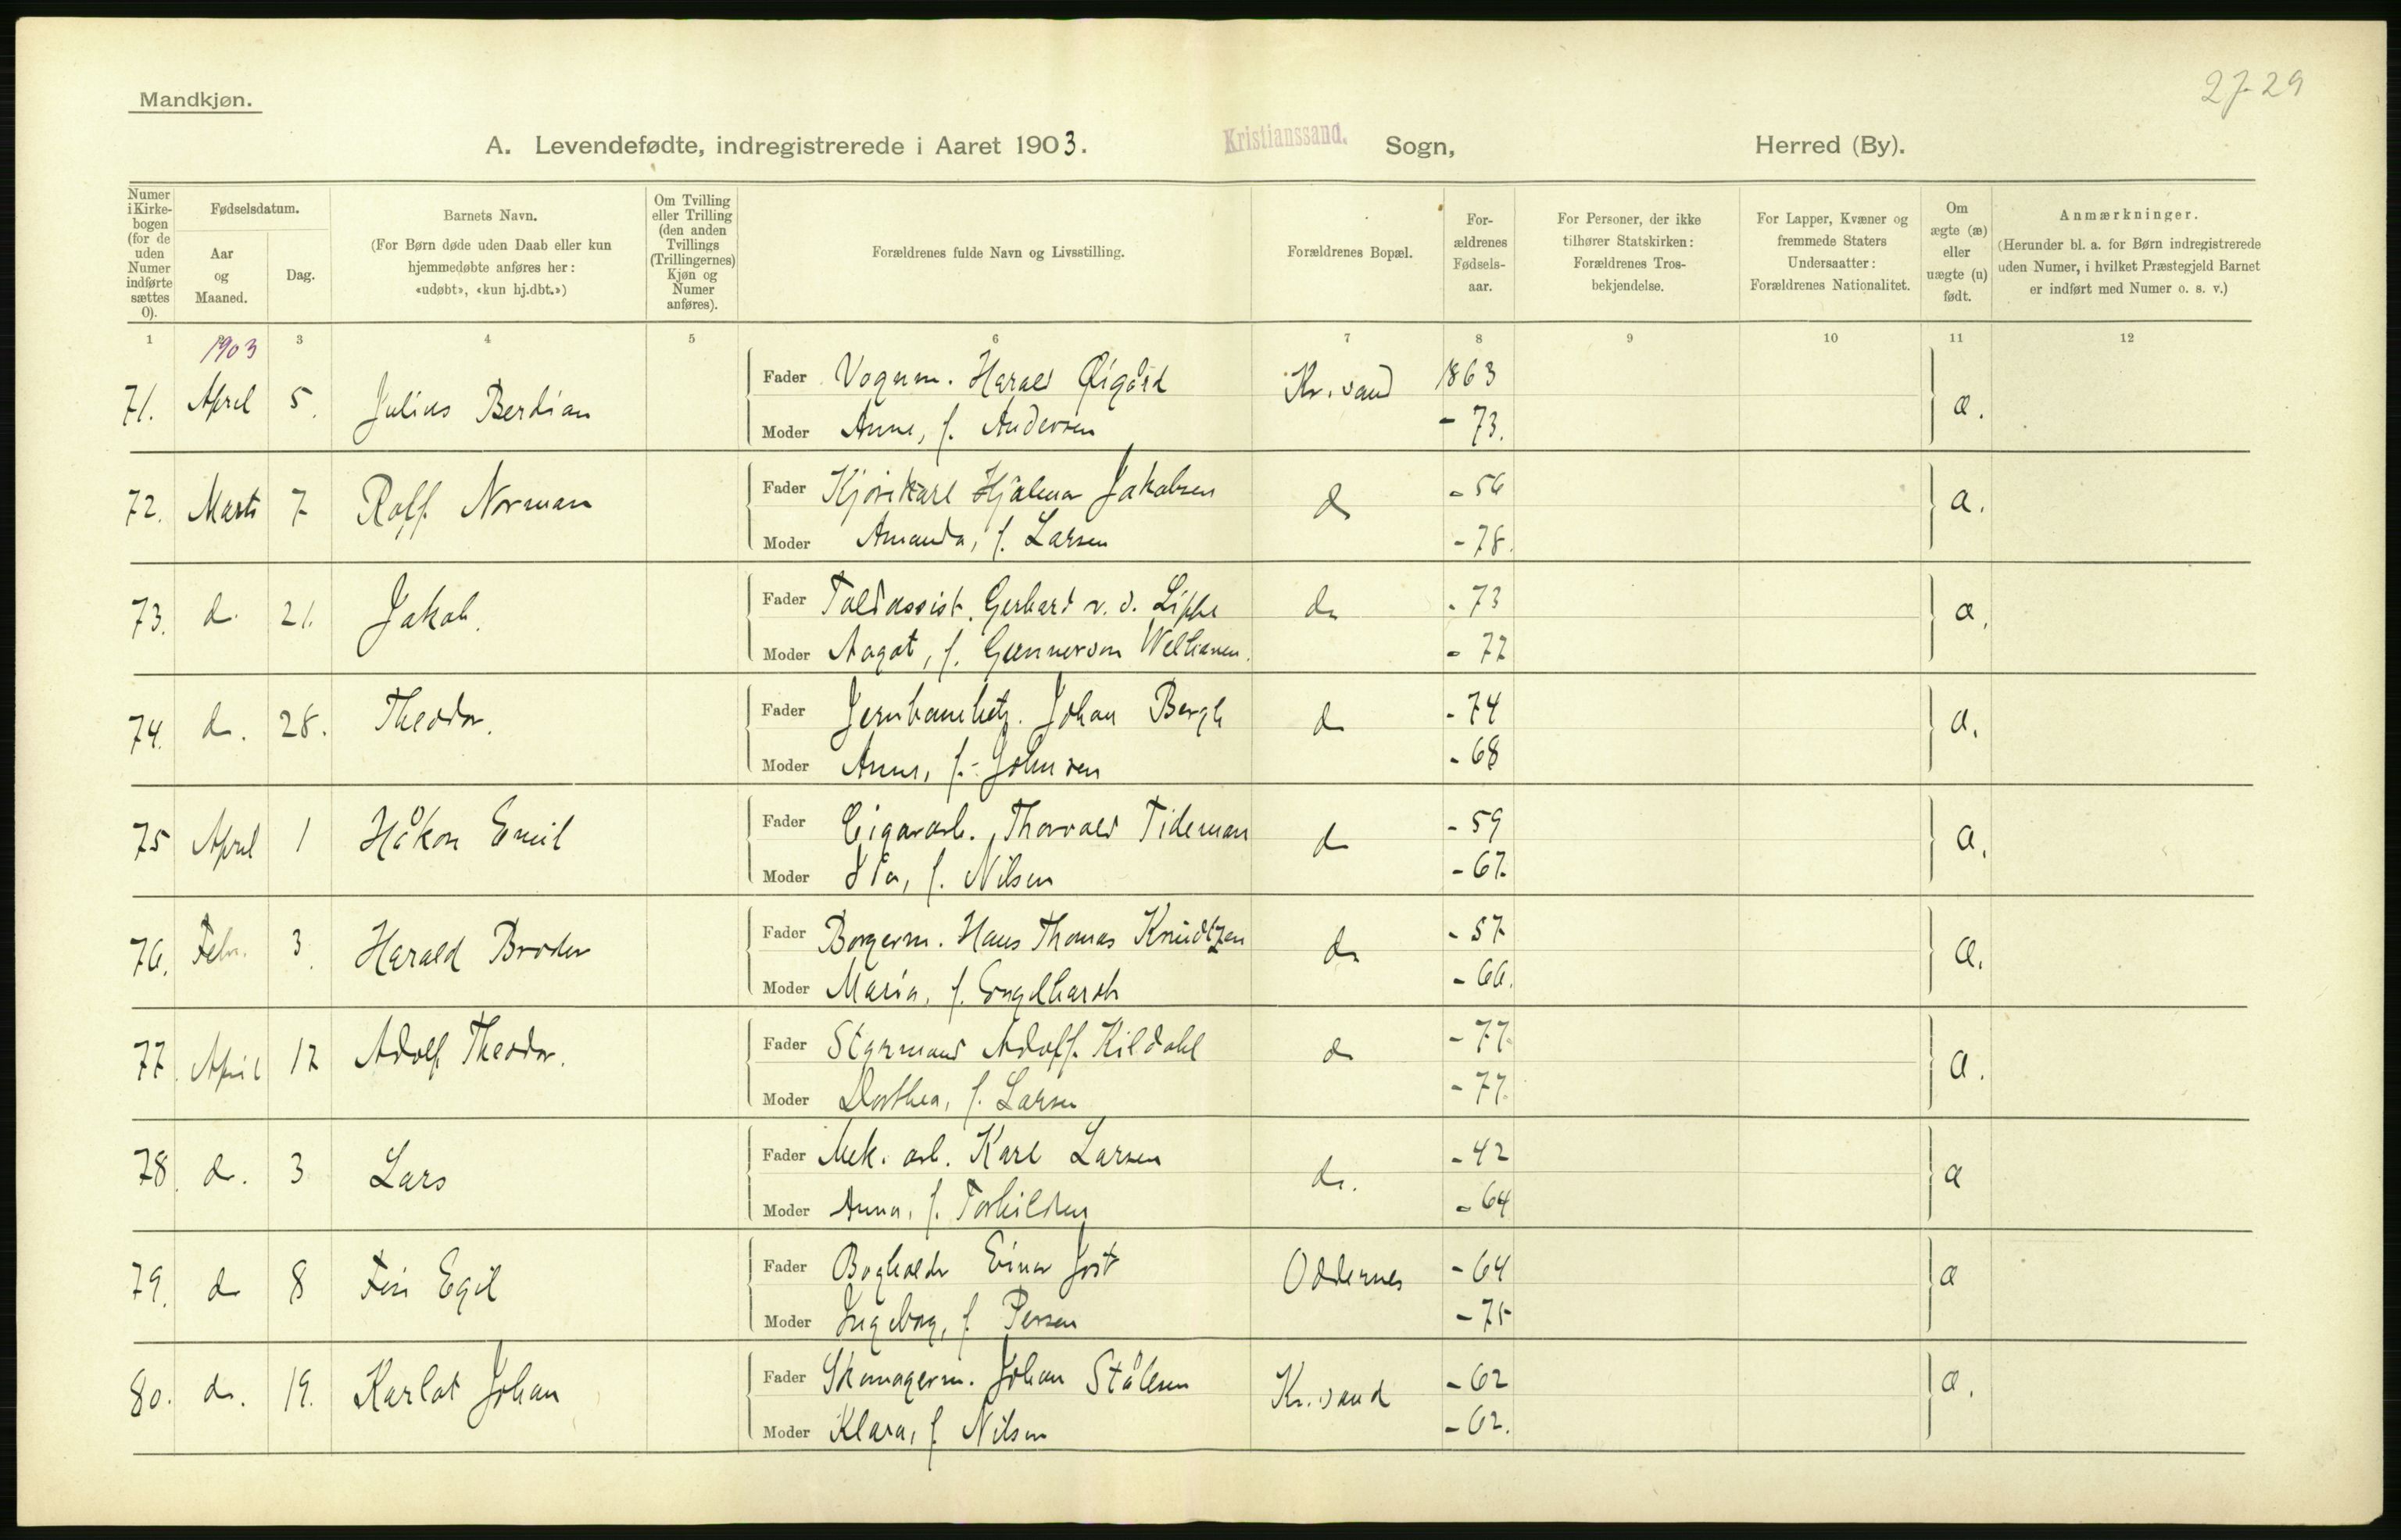 27-29
Mandkjøn.
A. Levendefødte, indregistrerede i Aaret 1903. Kristianssand. Sogn, Herred (By).
Numer i Kirke-bogen (for de uden Numer indførte sættes 0).
Fødselsdatum.
Aar og Maaned.
Dag.
Barnets Navn.
(For Børn døde uden Daab eller kun hjemmedøbte anføres her: «udøbt», «kun hj.dbt.»)
Om Tvilling eller Trilling (den anden Tvillings (Trillingernes) Kjøn og Numer anføres).
Forældrenes fulde Navn og Livsstilling.
Forældrenes Bopæl.
For-ældrenes Fødsels-aar.
For Personer, der ikke tilhører Statskirken: Forældrenes Tros-bekjendelse.
For Lapper, Kvæner og fremmede Staters Undersaatter: Forældrenes Nationalitet.
Om ægte (æ) eller uægte (u) født.
Anmærkninger.
(Herunder bl. a. for Børn indregistrerede uden Numer, i hvilket Præstegjeld Barnet er indført med Numer o. s. v.)
1 3 4 5 6 7 8 9 10 11 12
1903
71. April 5. Julius Berdian Fader Vognm. Harald Øigård Kr.sand 1863 æ.
Moder Anne, f. Andersen - 73.
72. Marts 7 Rolf Norman Fader Kjørekarl Hjalmar Jakobsen d - 56 æ.
Moder Amanda, f. Larsen - 78.
73. d. 21. Jakob. Fader Toldassist. Gerhard v. d. Lippe do - 73 æ.
Moder Aagot, f. Gunnerson Wellianen. - 77
74. d. 28. Theodor. Fader Johan Bergh d - 74 æ.
Moder Anne, f. Johnsen - 68
75 April 1 Håkon Emil Fader Cigararb. Thorvald Tideman d - 59 æ.
Moder Ida, f. Nilsen - 67.
76. Febr. 3. Harald Broder Fader Borgerm. Hans Thomas Knudtzen d - 57 æ.
Moder Maria, f. Engelhardt - 66.
77. April 17 Adolf Theodor. Fader Styrmand Adolf Kildahl d - 77. æ.
Moder Dorthea, f. Larsen - 77.
78. d. 3 Lars Fader Mek. arb. Karl Larsen do. - 42 æ
Moder Anna, f. Torkildsen - 64
79. d 8 Egil Fader Bogholder Einar Jost Oddernes - 64 æ
Moder Ingeborg, f. Persen - 75
80. d. 19. Karlot Johan Fader Skomagerm. Johan Stålesen Kr.sand - 62 æ.
Moder Klara, f. Nilsen - 62.